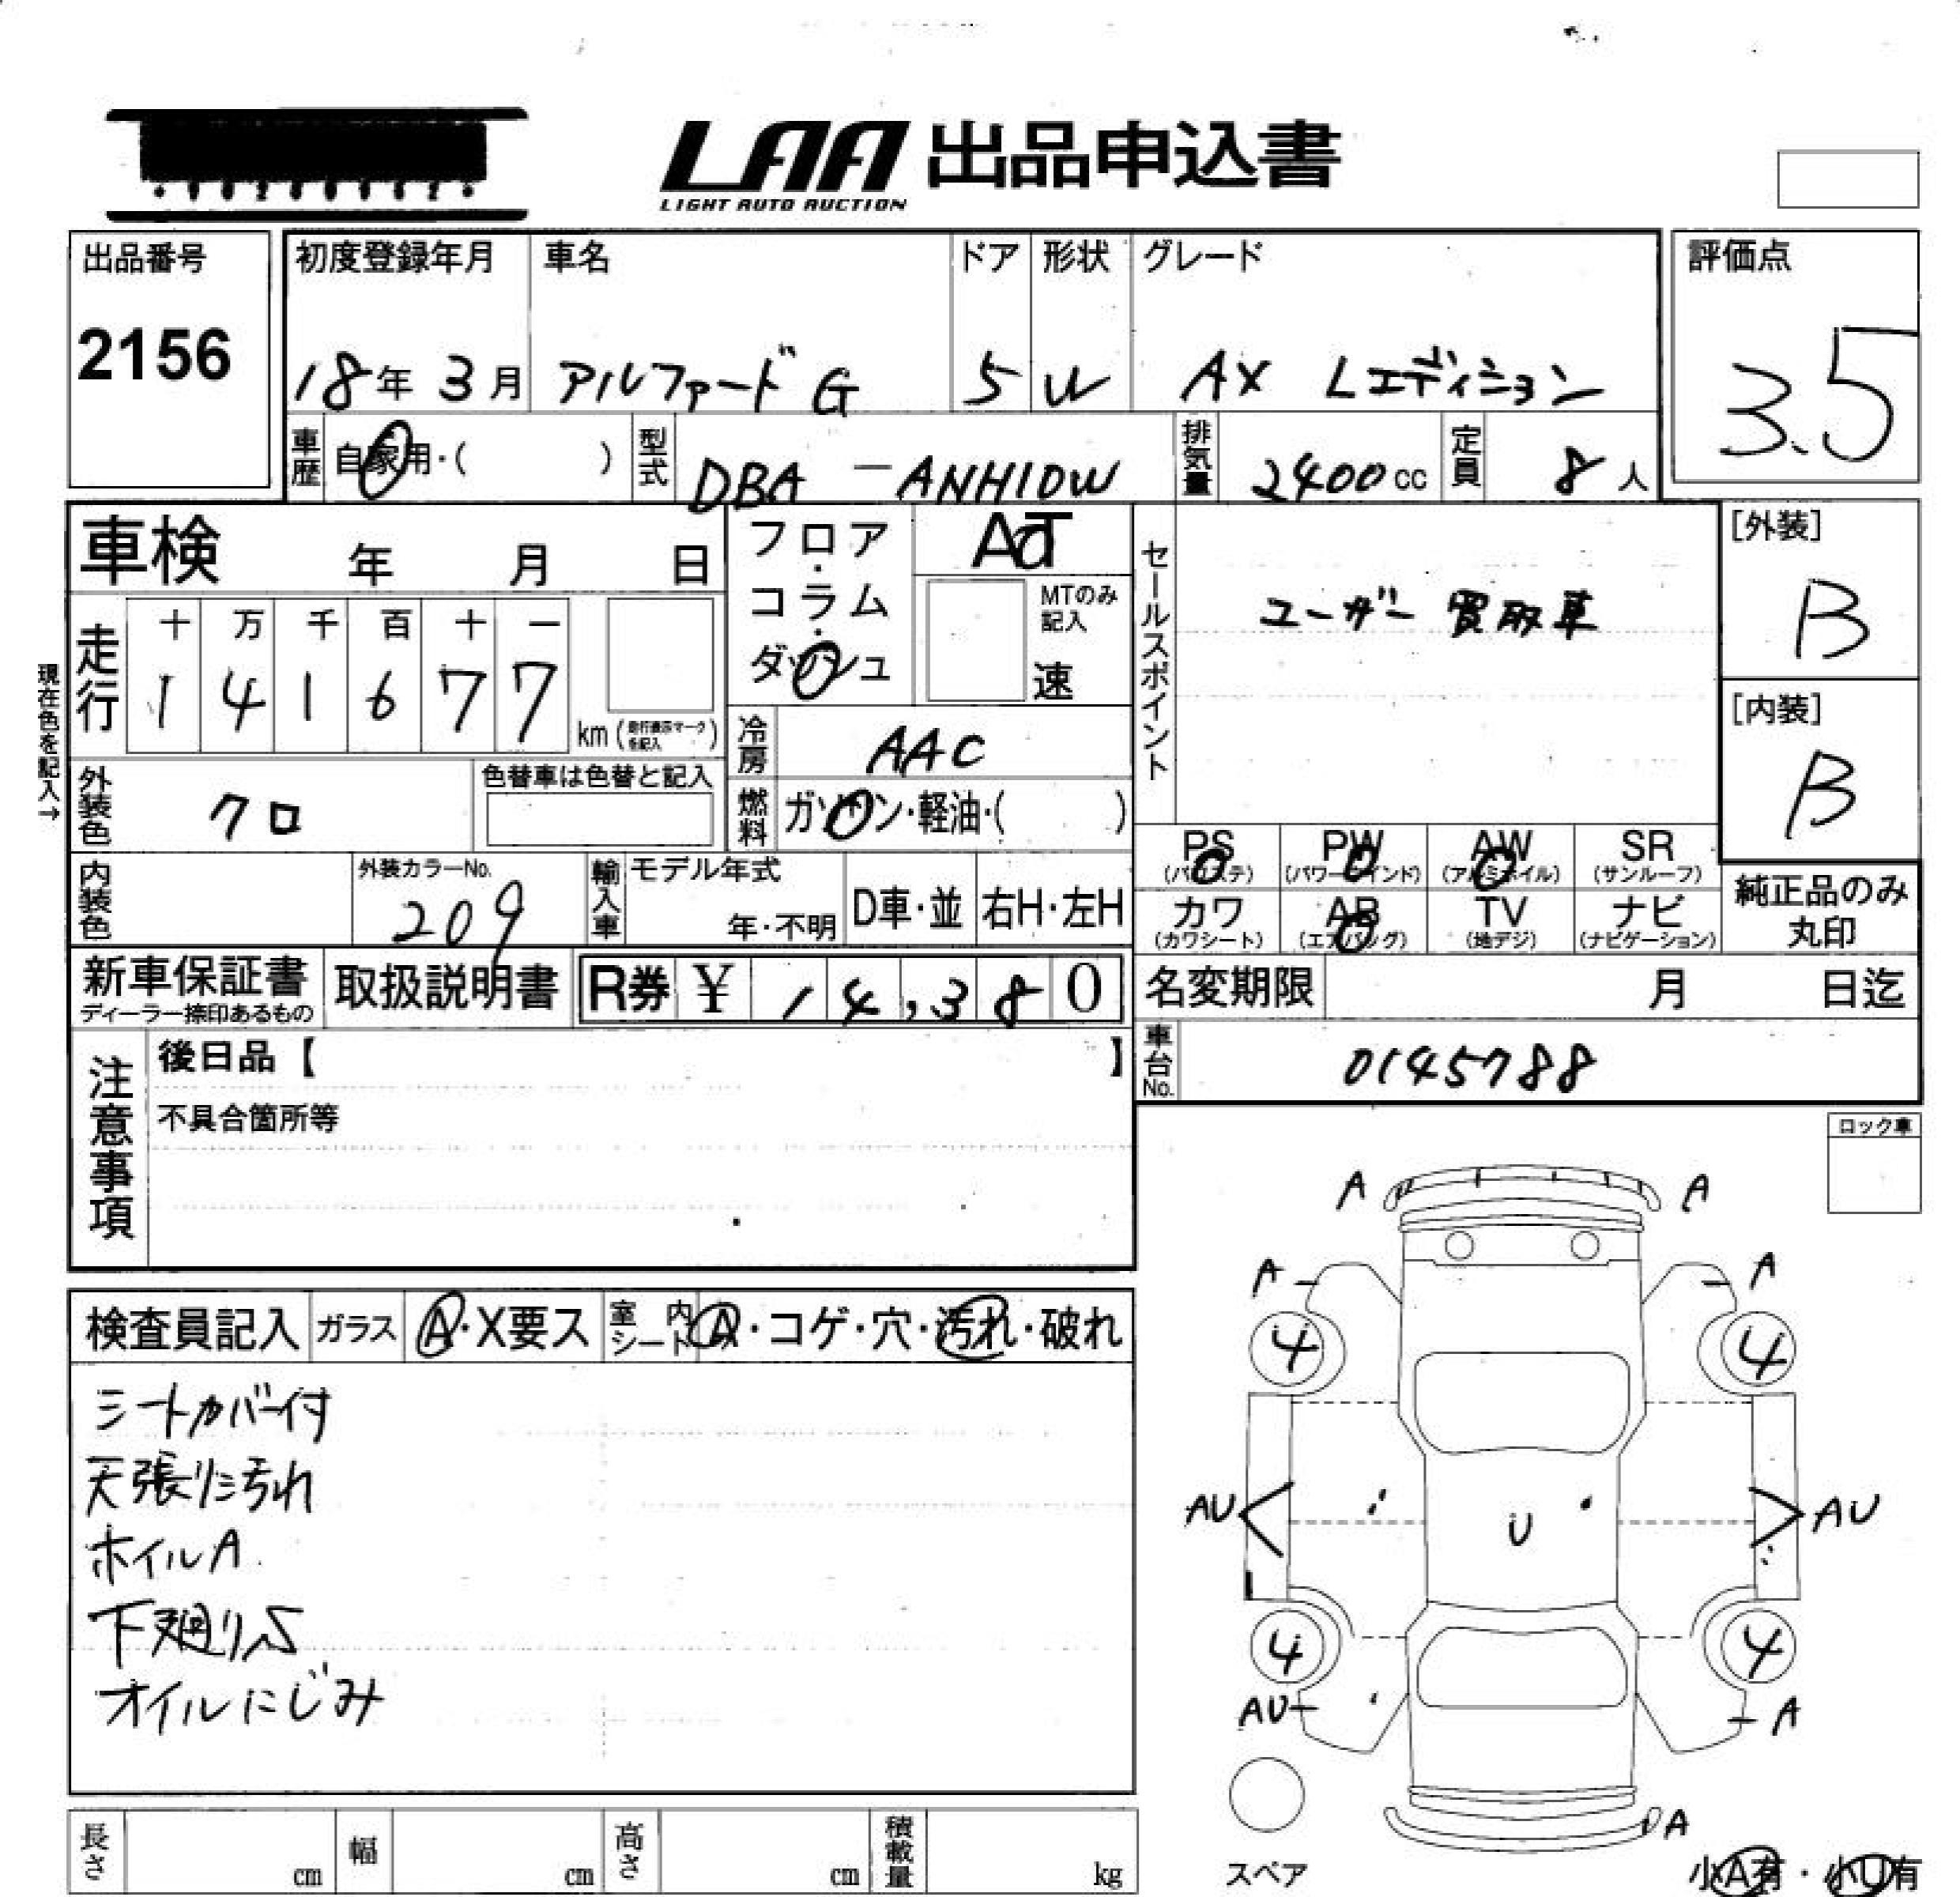 LAA 出品申込書
LIGHT AUTO AUCTION
出品番号
2156
初度登録年月 車名 ドア 形状 グレード
18年 3月 アルファードG 5 W AX Lエディション
評価点
3.5
車歴 自家用・( ) 型式 DBA-ANH10W 排気量 2400cc 定員 8人
車検 年 月 日
フロア・コラム・ダッシュ
AT
MTのみ記入
速
セールスポイント
ユーザー買取車
[外装]
B
[内装]
B
現在色を記入→
走行 十 万 千 百 十 一
1 4 1 6 7 7 km (走行表示マークを記入)
冷房 AAC
外装色 クロ 色替車は色替と記入
燃料 ガソリン・軽油・( )
PS (パワステ) PW (パワーウインド) AW (アルミホイル) SR (サンルーフ)
カワ (カワシート) AB (エアバッグ) TV (地デジ) ナビ (ナビゲーション)
純正品のみ丸印
内装色 外装カラーNo. 209 輸入車 モデル年式 年・不明 D車・並 右H・左H
新車保証書 ディーラー捺印あるもの 取扱説明書 R券 ¥ 14,380
名変期限 月 日迄
車台No. 0145788
注意事項
後日品【 】
不具合箇所等
ロック車
検査員記入 ガラス A・X要ス 室内シート A・コゲ・穴・汚れ・破れ
シートカバー付
天張りに汚れ
ホイルA
下廻りS
オイルにじみ
A A
A A
4 4
AU U AU
4 4
AU A
A
スペア
小A有・小U有
長さ cm 幅 cm 高さ cm 積載量 kg